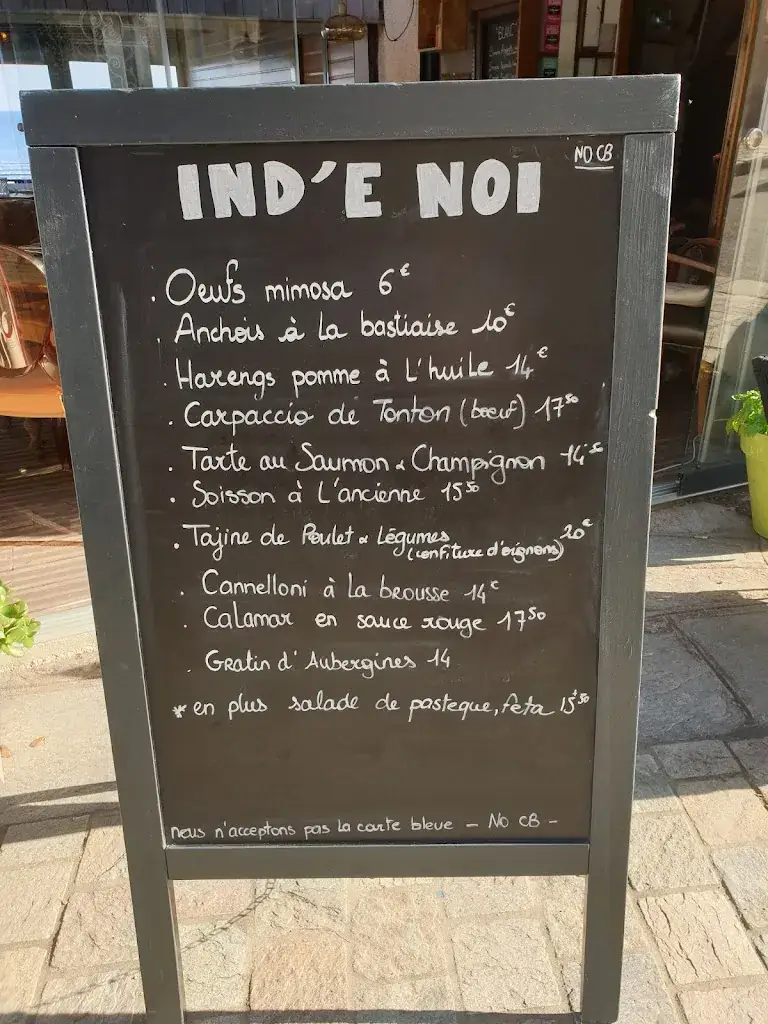 "BLANC"
NO CB
IND'E NOI
. Oeufs mimosa 6€
. Anchois à la bastiaise 10€
. Harengs pomme à L'huile 14€
. Carpaccio de Tonton (boeuf) 17⁵⁰
. Tarte au Saumon & Champignon 14⁵⁰
. Soisson à L'ancienne 15⁵⁰
. Tajine de Poulet & Légumes 20€
(confiture d'oignons)
. Cannelloni à la brousse 14€
. Calamar en sauce rouge 17⁵⁰
. Gratin d'Aubergines 14
* en plus salade de pasteque, feta 15⁵⁰
nous n'acceptons pas la carte bleue - No CB -